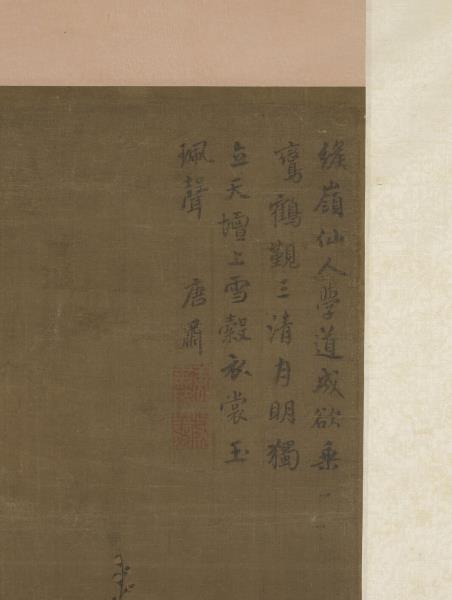 緱嶺仙人學道成欲乘
鸞鶴覲三清月明獨
立天壇上雪縠衣裳玉
珮聲 唐肅